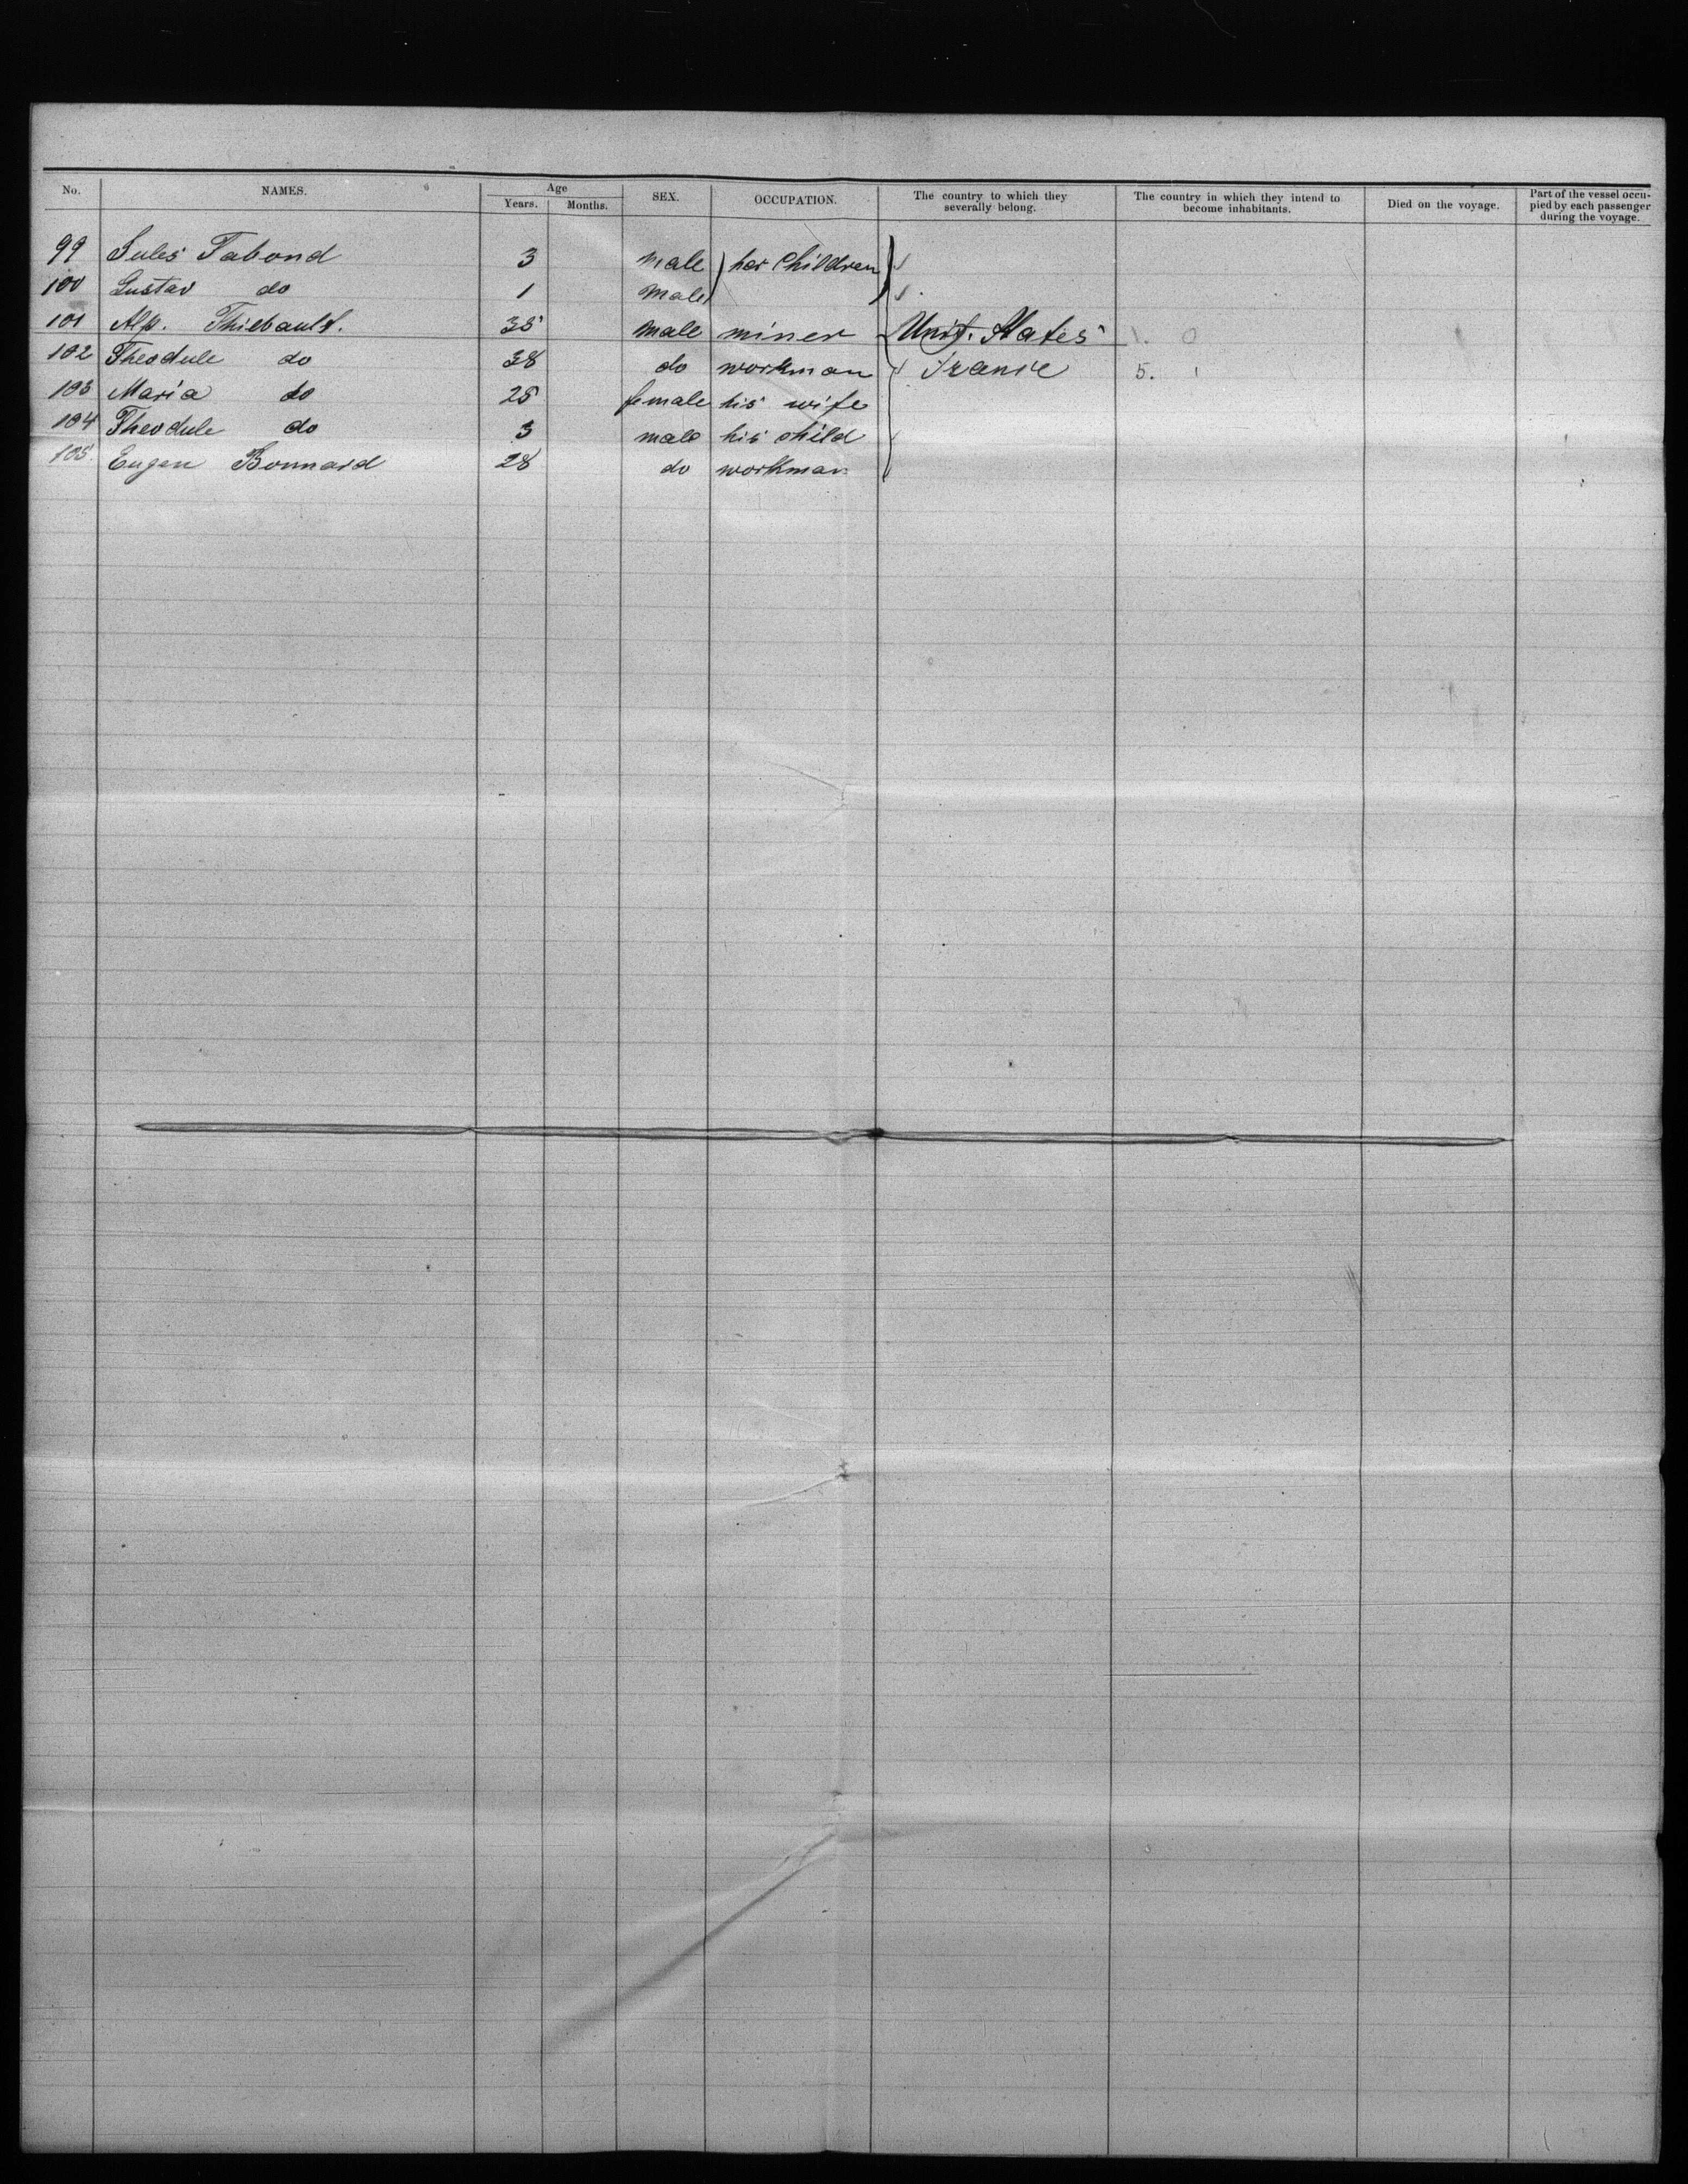 No. NAMES. Age Years. Months. SEX. OCCUPATION. The country to which they severally belong. The country in which they intend to become inhabitants. Died on the voyage. Part of the vessel occupied by each passenger during the voyage.
99 Jules Tabond 3 male } her Children
100 Gustav do 1 male
101 Alp. Thiebault. 35 male miner Unit. States 1. 0
102 Theodule do 38 do workman France 5. 1
103 Maria do 25 female his wife
104 Theodule do 3 male his child
105. Eugen Bonnard 28 do workman